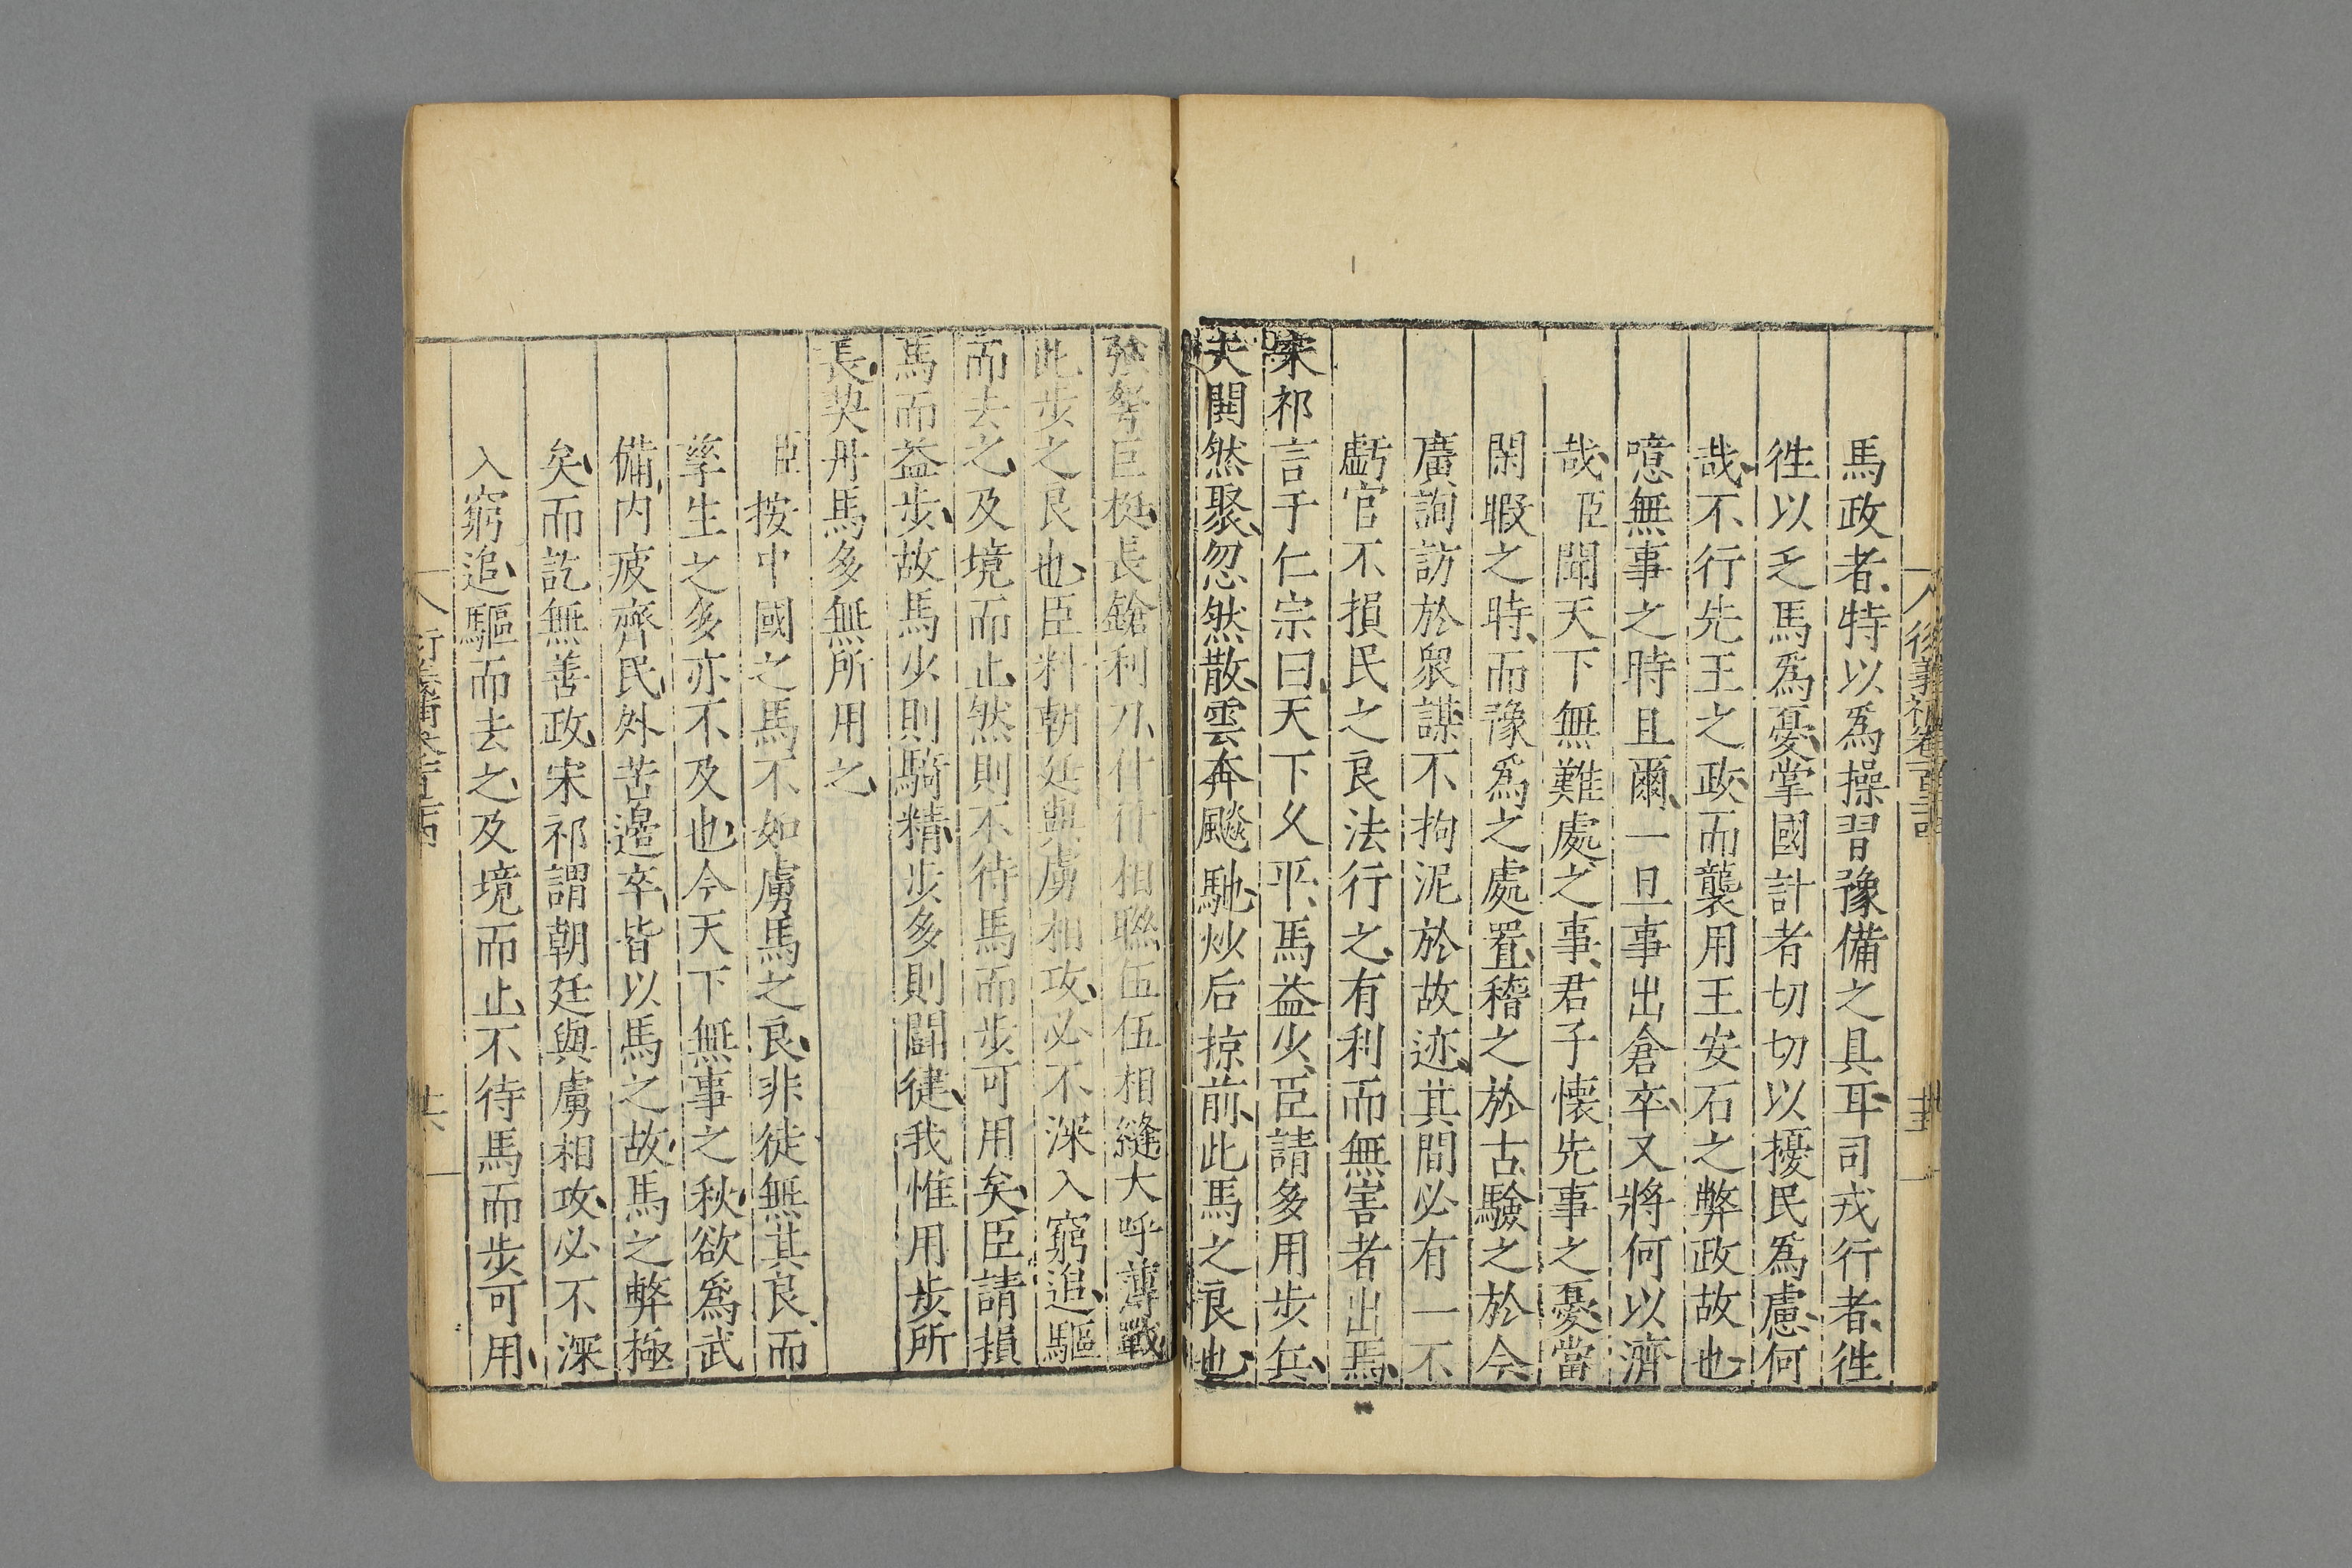 馬政者特以爲操習豫備之具耳司戎行者徃
徃以乏馬爲憂掌國計者切切以擾民爲慮何
哉不行先王之政而襲用王安石之弊政故也
噫無事之時且爾一旦事出倉卒又將何以濟
哉臣聞天下無難處之事君子懐先事之憂當
閑暇之時而豫爲之處置稽之於古驗之於今
廣詢訪於衆謀不拘泥於故迹其間必有一不
虧官不損民之良法行之有利而無害者出焉
宋祁言于仁宗曰天下乆平馬益少臣請多用步兵
夫鬨然聚忽然散雲奔飈馳抄后掠前此馬之良也
強弩巨梃長鎗利刀什什相聯伍伍相縫大呼薄戰
此步之良也臣料朝廷與虜相攻必不深入窮追驅
而去之及境而止然則不待馬而步可用矣臣請損
馬而益步故馬少則騎精步多則鬪健我惟用步所
長契丹馬多無所用之
臣按中國之馬不如虜馬之良非徒無其良而
孳生之多亦不及也今天下無事之秋欲爲武
備内疲齊民外苦邉卒皆以馬之故馬之弊極
矣而訖無善政宋祁謂朝廷與虜相攻必不深
入窮追驅而去之及境而止不待馬而步可用